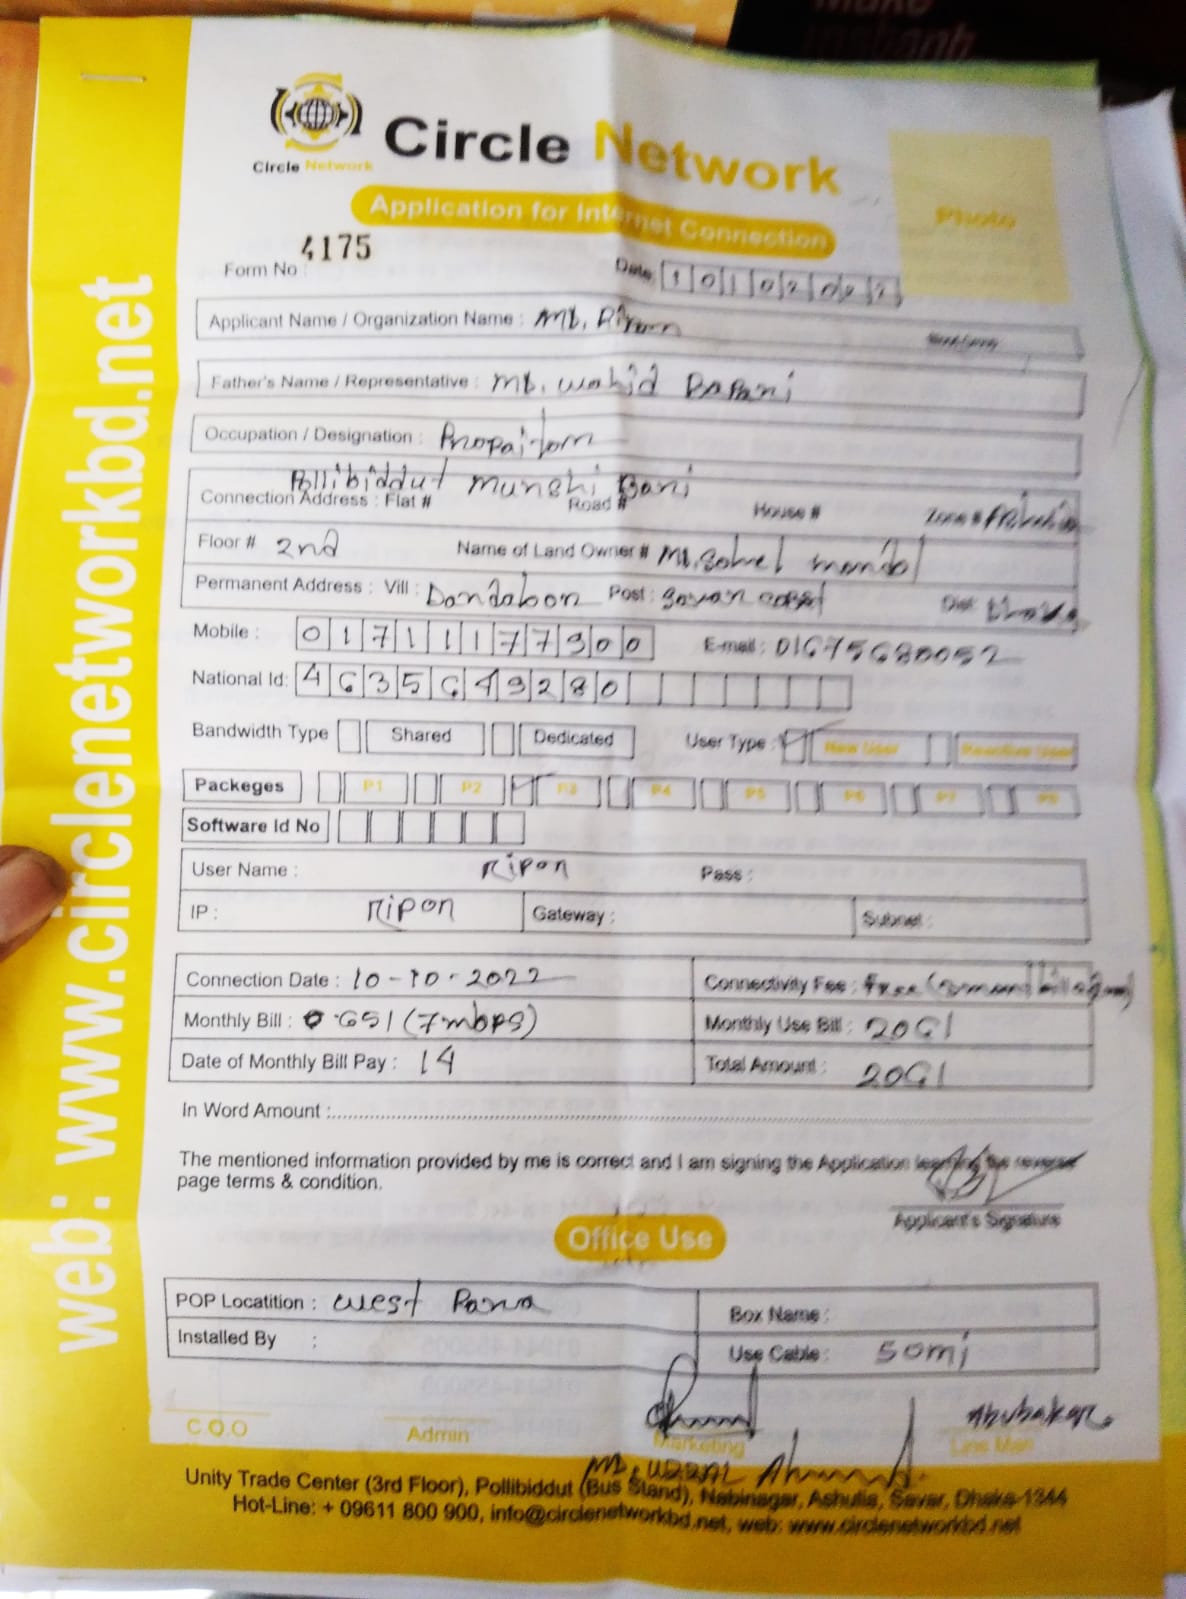 Circle Network
Circle Network
Application for Internet Connection
Photo
Form No : 4175
Date:
Applicant Name / Organization Name : Md. Ripon
Father's Name / Representative : Md. Wahid
Occupation / Designation :
Pollibiddut Munshi Bari
Connection Address : Flat # Road # House # Zone #
Floor # 2nd Name of Land Owner # Md. Sohel mondol
Permanent Address : Vill : Post : Dist: Dhaka
Mobile : 01711177900 E-mail : 01675680052
National Id: 4635649280
Bandwidth Type Shared Dedicated User Type : New User Reactive User
Packeges P1 P2 P3 P4 P5 P6 P7 P8
Software Id No
User Name : Ripon Pass :
IP : Ripon Gateway : Subnet :
Connection Date : 10-10-2022 Connectivity Fee : Free
Monthly Bill : 651 (7mbps) Monthly Use Bill : 2061
Date of Monthly Bill Pay : 14 Total Amount : 2061
In Word Amount :
The mentioned information provided by me is correct and I am signing the Application learning the reverse
page terms & condition.
Applicant's Signature
Office Use
POP Locatition : West Para Box Name :
Installed By : Use Cable : 50mi
Abubakar
C.O.O Admin Marketing Line Man
Unity Trade Center (3rd Floor), Pollibiddut (Bus Stand), Nabinagar, Ashulia, Savar, Dhaka-1344
Hot-Line: + 09611 800 900, info@circlenetworkbd.net, web: www.circlenetworkbd.net
web: www.circlenetworkbd.net